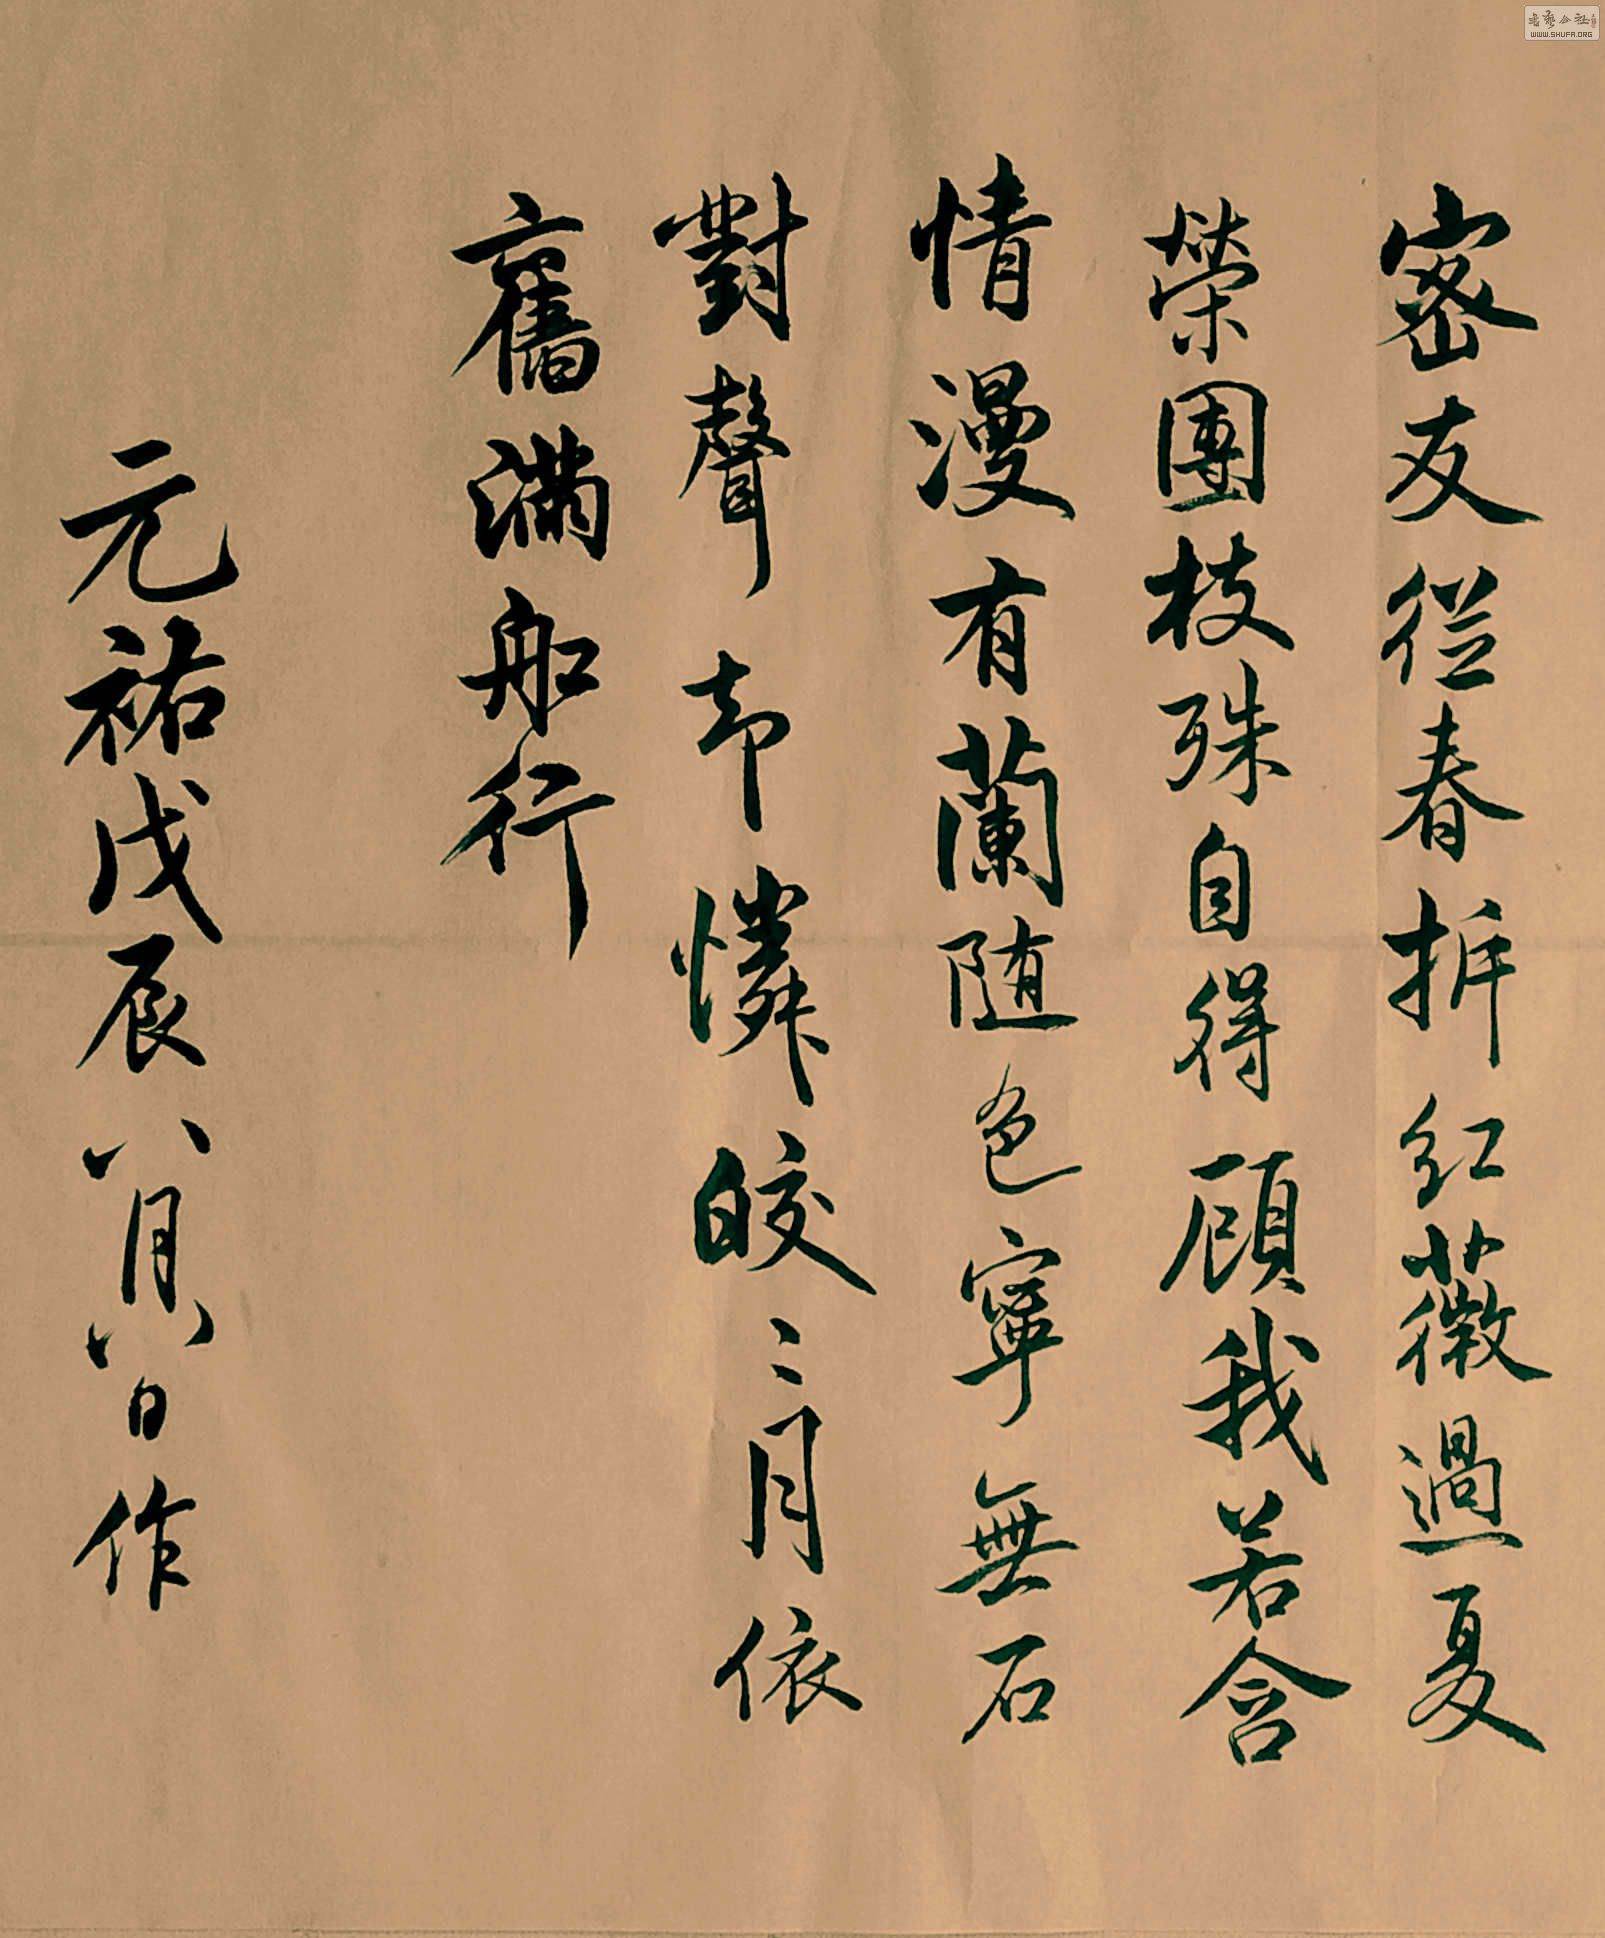 密友從春拆紅薇過夏
榮團枝殊自得顧我若含
情漫有蘭随色寧無石
對聲却憐皎〻月依
舊滿船行
元祐戊辰八月八日作
WWW.SHUFA.ORG